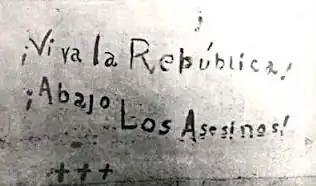 ¡Viva la República!
¡Abajo Los Asesinos!
+++